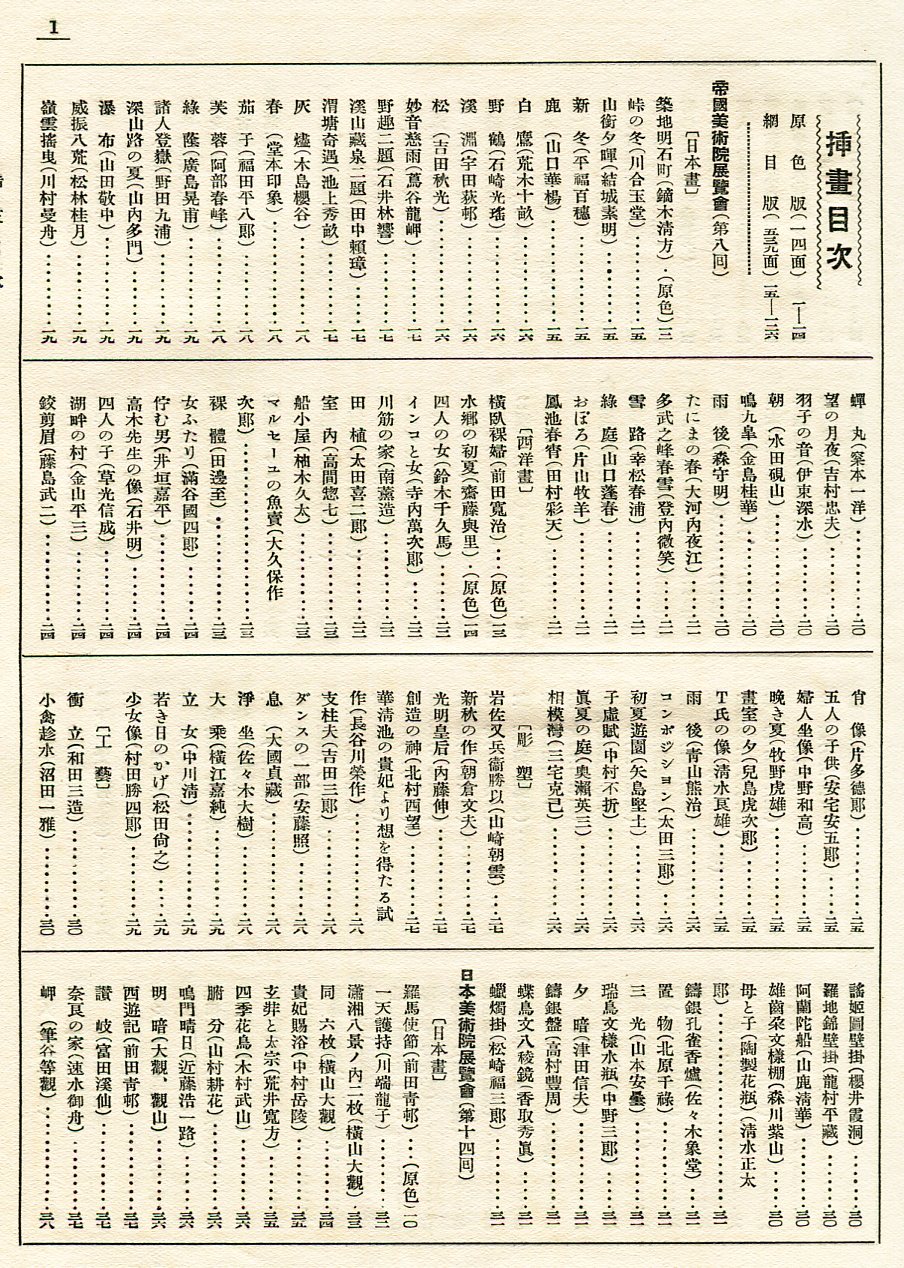 1
挿畫目次
原色版(一四面) 一—一四
網目版(五三九面) 一五—一二六
帝國美術院展覽會(第八回)
[日本畫]
築地明石町(鏑木淸方)・(原色)一二
峠の冬(川合玉堂)・・・・・・一五
山街夕暉(結城素明)・・・・・・一五
新冬(平福百穗)・・・・・・一五
鹿(山口華楊)・・・・・・一五
白鷹(荒木十畝)・・・・・・一六
野鶴(石崎光瑤)・・・・・・一六
溪澗(宇田荻邨)・・・・・・一六
松(吉田秋光)・・・・・・一六
妙音慈雨(蔦谷龍岬)・・・・・・一七
野趣二題(石井林響)・・・・・・一七
溪山藏泉二題(田中賴璋)・・・・・・一七
渭塘奇遇(池上秀畝)・・・・・・一七
灰燼(木島櫻谷)・・・・・・一八
春(堂本印象)・・・・・・一八
茄子(福田平八郎)・・・・・・一八
芙蓉(阿部春峰)・・・・・・一八
綠蔭(廣島晃甫)・・・・・・一九
諸人登嶽(野田九浦)・・・・・・一九
深山路の夏(山内多門)・・・・・・一九
瀑布(山田敬中)・・・・・・一九
威振八荒(松林桂月)・・・・・・一九
嶺雲搖曳(川村曼舟)・・・・・・一九
蟬丸(案本一洋)・・・・・・二〇
望の月夜(吉村忠夫)・・・・・・二〇
羽子の音(伊東深水)・・・・・・二〇
朝(水田硯山)・・・・・・二〇
鳴九皐(金島桂華)・・・・・・二〇
雨後(森守明)・・・・・・二〇
たにまの春(大河内夜江)・・・・・・二一
多武之峰春雪(登内微笑)・・・・・・二一
雪路(幸松春浦)・・・・・・二一
綠庭(山口蓬春)・・・・・・二一
おぼろ(片山牧羊)・・・・・・二一
鳳池春宵(田村彩天)・・・・・・二一
[西洋畫]
橫臥裸婦(前田寬治)・(原色)一三
水鄕の初夏(齋藤與里)・(原色)一四
四人の女(鈴木千久馬)・・・・・・二二
インコと女(寺内萬次郞)・・・・・・二二
川筋の家(南薰造)・・・・・・二二
田植(太田喜二郞)・・・・・・二二
室内(高間惣七)・・・・・・二三
船小屋(柚木久太)・・・・・・二三
マルセーユの魚賣(大久保作
次郞)・・・・・・二三
裸體(田邊至)・・・・・・二三
女ふたり(滿谷國四郞)・・・・・・二四
佇む男(井垣嘉平)・・・・・・二四
高木先生の像(石井明)・・・・・・二四
四人の子(草光信成)・・・・・・二四
湖畔の村(金山平三)・・・・・・二四
鉸剪眉(藤島武二)・・・・・・二四
肖像(片多德郞)・・・・・・二五
五人の子供(安宅安五郞)・・・・・・二五
婦人坐像(中野和高)・・・・・・二五
晚き夏(牧野虎雄)・・・・・・二五
畫室の夕(兒島虎次郞)・・・・・・二五
T氏の像(淸水良雄)・・・・・・二五
雨後(靑山熊治)・・・・・・二六
コンポジション(太田三郞)・・・・・・二六
初夏遊園(矢島堅土)・・・・・・二六
子虛賦(中村不折)・・・・・・二六
眞夏の庭(奧瀨英三)・・・・・・二六
相模灣(三宅克己)・・・・・・二六
[彫塑]
岩佐又兵衞勝以(山崎朝雲)・・・・・・二七
新秋の作(朝倉文夫)・・・・・・二七
光明皇后(内藤伸)・・・・・・二七
創造の神(北村西望)・・・・・・二七
華淸池の貴妃より想を得たる試
作(長谷川榮作)・・・・・・二八
支柱夫(吉田三郞)・・・・・・二八
ダンスの一部(安藤照)・・・・・・二八
息(大國貞藏)・・・・・・二八
淨坐(佐々木大樹)・・・・・・二八
大乘(橫江嘉純)・・・・・・二九
立女(中川淸)・・・・・・二九
若き日のかげ(松田尙之)・・・・・・二九
少女像(村田勝四郞)・・・・・・二九
[工藝]
衝立(和田三造)・・・・・・三〇
小禽趁水(沼田一雅)・・・・・・三〇
謠姬圖壁掛(櫻井霞洞)・・・・・・三〇
羅地錦壁掛(龍村平藏)・・・・・・三〇
阿蘭陀船(山鹿淸華)・・・・・・三〇
雄齒朶文樣棚(森川紫山)・・・・・・三〇
母と子(陶製花瓶)(淸水正太
郞)・・・・・・三一
鑄銀孔雀香爐(佐々木象堂)・・・・・・三一
置物(北原千祿)・・・・・・三一
三光(山本安曇)・・・・・・三一
瑞鳥文樣水瓶(中野三郞)・・・・・・三一
夕暗(津田信夫)・・・・・・三一
鑄銀盤(高村豐周)・・・・・・三一
蝶鳥文八稜鏡(香取秀眞)・・・・・・三一
蠟燭掛(松崎福三郞)・・・・・・三一
日本美術院展覽會(第十四回)
[日本畫]
羅馬使節(前田靑邨)・・・(原色)一〇
一天護持(川端龍子)・・・・・・三二
瀟湘八景ノ内二枚(橫山大觀)・・・・・・三三
同六枚(橫山大觀)・・・・・・三四
貴妃賜浴(中村岳陵)・・・・・・三五
玄弉と太宗(荒井寬方)・・・・・・三五
四季花鳥(木村武山)・・・・・・三六
腑分(山村耕花)・・・・・・三六
鳴門晴日(近藤浩一路)・・・・・・三六
明暗(大觀、觀山)・・・・・・三六
西遊記(前田靑邨)・・・・・・三七
讚岐(富田溪仙)・・・・・・三七
奈良の家(速水御舟)・・・・・・三七
岬(筆谷等觀)・・・・・・三八